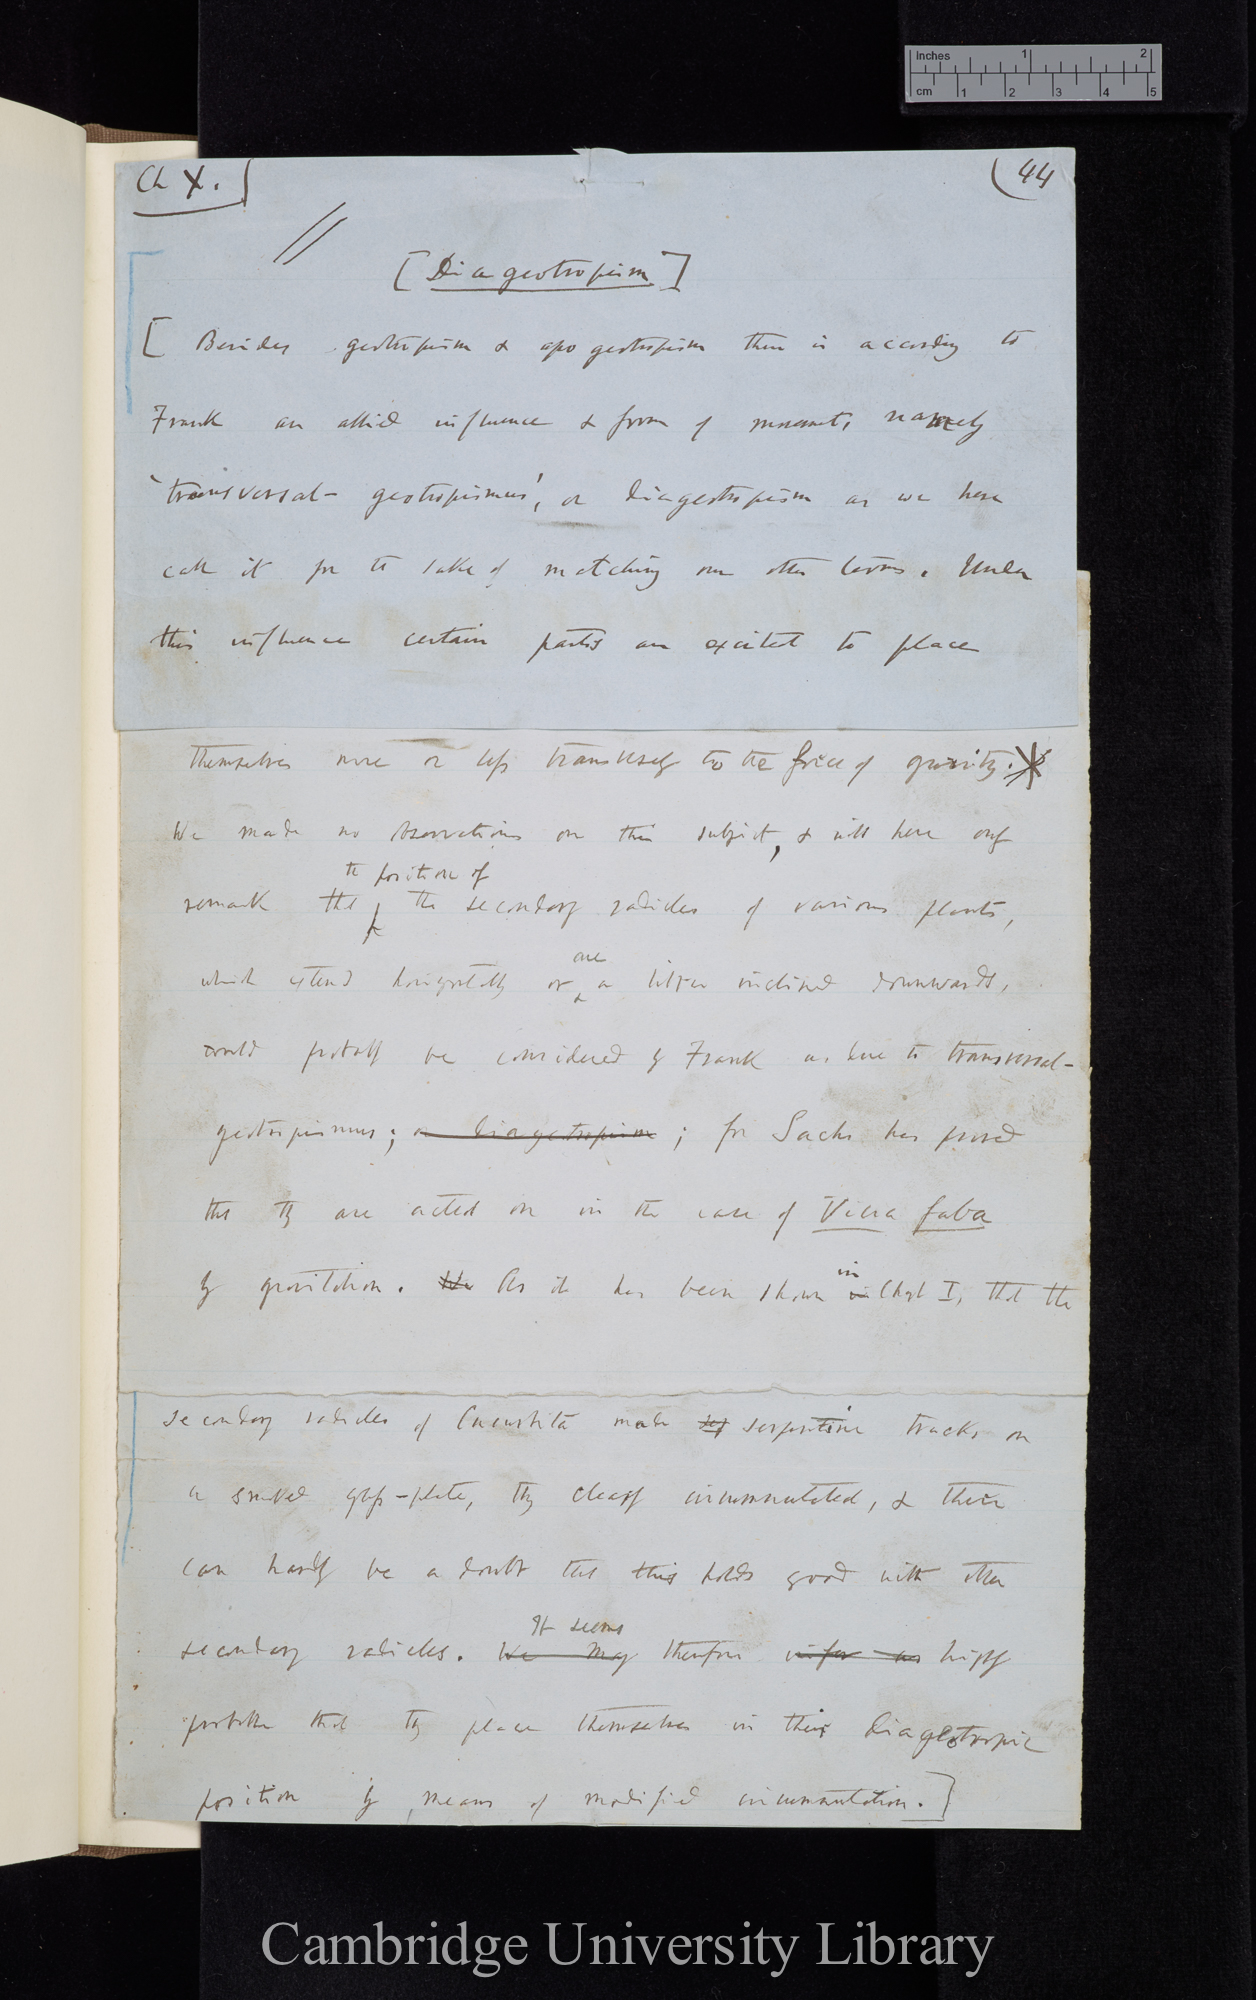 inches 1 2
cm 1 2 3 4 5
Ch X.
(44
[Diageotropism]
[Besides geotropism & apogeotropism there is according to
Frank an allied influence & form of movement, namely
'transversal-geotropismus', or diageotropism as we here
call it for the sake of matching our other terms. Under
this influence certain parts are excited to place
themselves more or less transversely to the force of gravity.*
We made no observations on this subject, & will here only
the position of
remark that the secondary radicles of various plants,
are
which extend horizontally or a little inclined downwards,
would probably be considered by Frank as due to transversal-
geotropismus; or diageotropism; for Sachs has proved
that they are acted on in the case of Vicia faba
in
by gravitation. We As it has been shown in Chapt I, that the
secondary radicles of Cucurbita made ser serpentine tracks on
a smoked glass-plate, they clearly circumnutated, & there
can hardly be a doubt that this holds good with other
It seems
secondary radicles. We may therefore infer as highly
probable that they place themselves in their diageotropic
position by means of modified circumnutation.]
Cambridge University Library